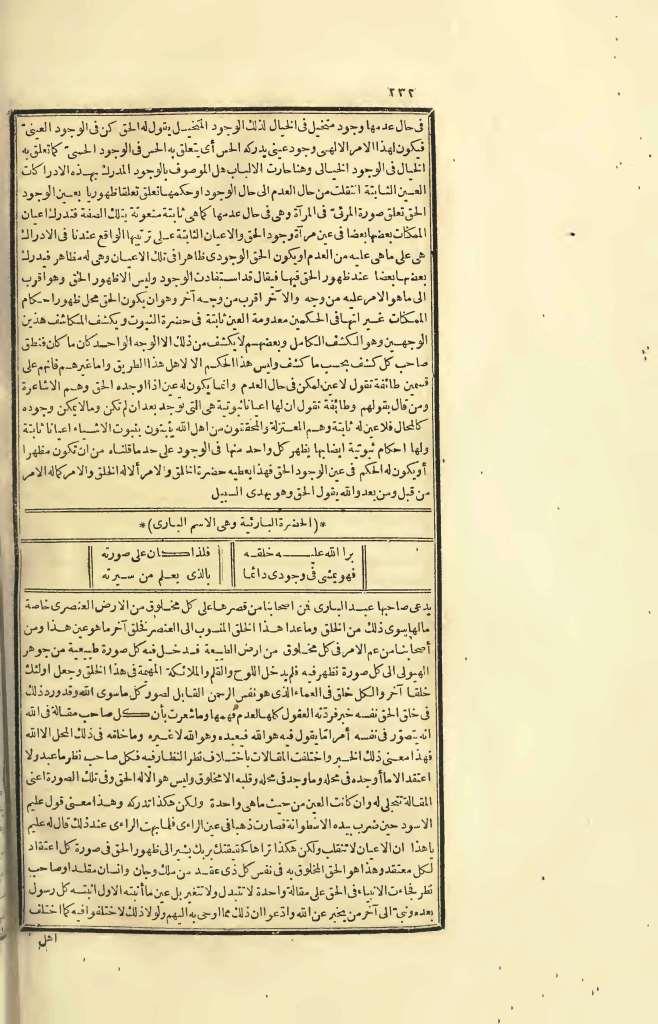 ٢٣٢
فى حال عدمها وجود متخيل فى الخيال لذلك الوجود المتخيل يقول له الحق كن فى الوجود العينى
فيكون لهذا الامر الالهى وجود عينى يدركه الحس أى يتعلق به الحس فى الوجود الحسى كما تعلق به
الخيال فى الوجود الخيالى وهنا حارت الالباب هل الموصوف بالوجود المدرك بهذه الادراكات
العين الثابتة انتقلت من حال العدم الى حال الوجود او حكمها تعلق تعلقا ظهوريا بعين الوجود
الحق تعلق صورة المرئى فى المرآة وهى فى حال عدمها كما هى ثابتة منعوتة بتلك الصفة فتدرك اعيان
الممكنات بعضها بعضا فى عين مرآة وجود الحق والاعيان الثابتة على ترتيبها الواقع عندنا فى الادراك
هى على ماهى عليه من العدم او يكون الحق الوجودى ظاهرا فى تلك الاعيان وهى له مظاهر فيدرك
بعضها بعضا عند ظهور الحق فيها فيقال قد استفادت الوجود وليس الاظهور الحق وهو أقرب
الى ماهو الامر عليه من وجه والآخر اقرب من وجه آخر وهو ان يكون الحق محل ظهور احكام
الممكنات غير انها فى الحكمين معدومة العين ثابتة فى حضرة الثبوت ويكشف المكاشف هذين
الوجهين وهو الكشف الكامل وبعضهم لا يكشف من ذلك الا الوجه الواحد كان ما كان فنطق
صاحب كل كشف بحسب ما كشف وليس هذا الحكم الا لاهل هذا الطريق واما غيرهم فانهم على
قسمين طائفة تقول لاعين لممكن فى حال العدم وانما يكون له عين اذا اوجده الحق وهم الاشاعرة
ومن قال بقولهم وطائفة تقول ان لها اعيانا ثبوتية هى التى توجد بعد ان لم تكن وما لا يمكن وجوده
كالمحال فلا عين له ثابتة وهم المعتزلة والمحققون من اهل الله يثبتون بثبوت الاشياء اعيانا ثابتة
ولها احكام ثبوتية ايضا بها يظهر كل واحد منها فى الوجود على حد ما قلناه من ان تكون مظهرا
أو يكون له الحكم فى عين الوجود الحق فهذا يعطيه حضرة الخلق والامر ألا له الخلق والامر كما له الامر
من قبل ومن بعد والله يقول الحق وهو يهدى السبيل
*(الحضرة البارئية وهى الاسم البارى)*
برا الله عليه خلقه فلذا كان على صورته
فهو يمشى فى وجودى دائما بالذى يعلم من سيرته
يدعى صاحبها عبد البارى فمن اصحابنا من قصرها على كل مخلوق من الارض العنصرى خاصة
مالها سوى ذلك من الخلق وما عدا هذا الخلق المنسوب الى العنصر فخلق آخر ماهو عين هذا ومن
أصحابنا من عم الامر فى كل مخلوق من ارض الطبيعة فدخل فيه كل صورة طبيعية من جوهر
الهيولى الى كل صورة تظهر فيه فلم يدخل اللوح والقلم والملائكة المهيمة فى هذا الخلق وجعل اولئك
خلقا آخر والكل خلق فى العماء الذى هو نفس الرحمن القابل لصور كل ماسوى الله وقد ورد ذلك
فى خلق الحق نفسه خبر فردته العقول كلها لعدم فهمها وما شعرت بأن كل صاحب مقالة فى الله
انه يتصور فى نفسه أمرا ما يقول فيه هو الله فعبده وهو الله لاغيره وما خلقه فى ذلك المحل الا الله
فهذا معنى ذلك الخبر واختلفت المقالات باختلاف نظر النظار فيه فكل صاحب نظر ما عبد ولا
اعتقد الا ما أوجده فى محله وما وجد فى محله وقلبه الا مخلوق وليس هو الاله الحق وفى تلك الصورة اعنى
المقالة تتجلى له وان كانت العين من حيث ماهى واحدة ولكن هكذا تدركه وهذا معنى قول عليم
الاسود حين ضرب بيده الاسطوانة فصارت ذهبا فى عين الراءى فلما بهت الراءى عند ذلك قال له عليم
ياهذا ان الاعيان لا تنقلب ولكن هكذا تراها لحقيقتك بربك يشير الى ظهور الحق فى صورة كل اعتقاد
لكل معتقد وهذا هو الحق المخلوق به فى نفس كل ذى عقد من ملك وجان وانسان مقلد او صاحب
نظر فجاءت الانبياء فى الحق على مقالة واحدة لا تتبدل ولا تتغير بل عين ما أثبته الاول اثبته كل رسول
بعده ونبى الى آخر من يخبر عن الله وادعوا ان ذلك مما اوحى به اليهم ولولا ذلك لاختلفوا فيه كما اختلف
اهل